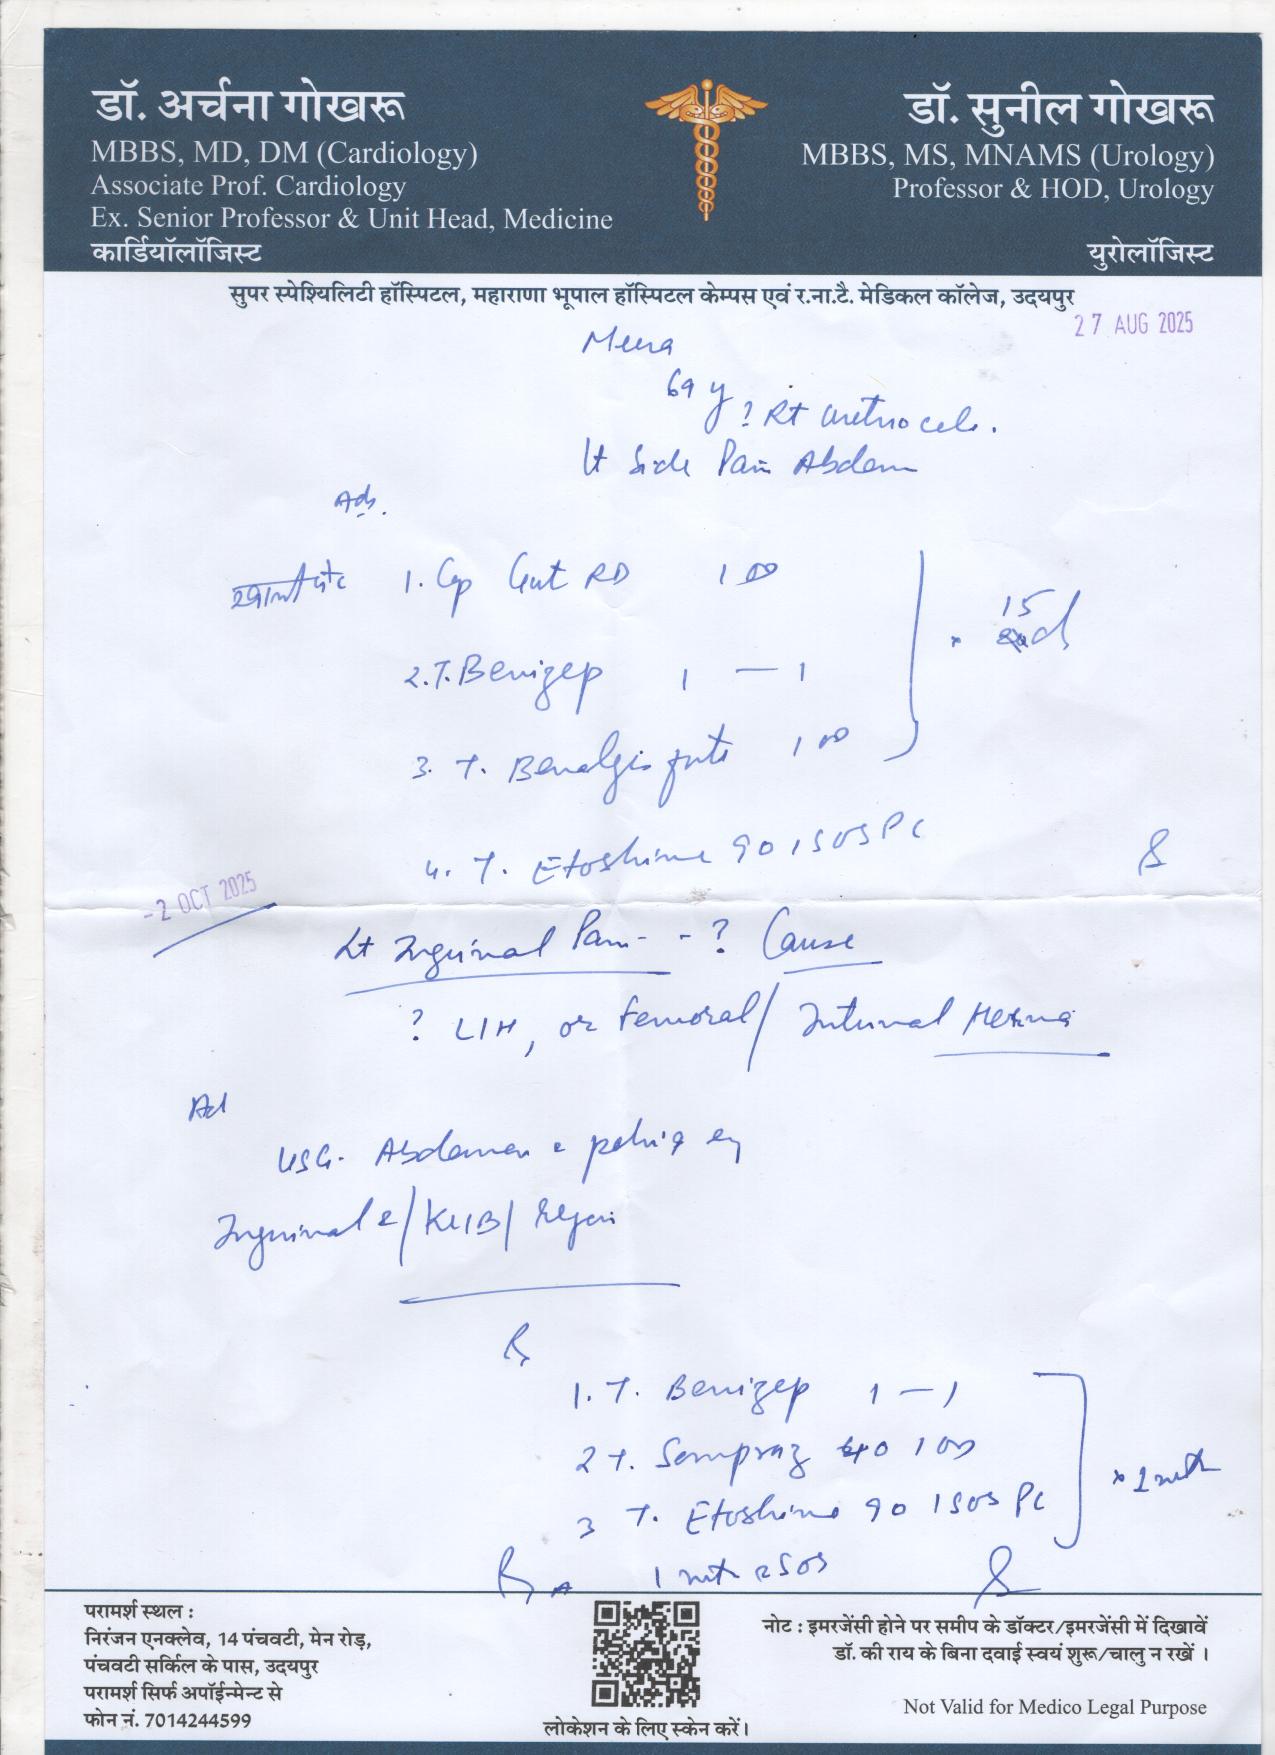 डॉ. अर्चना गोखरू
MBBS, MD, DM (Cardiology)
Associate Prof. Cardiology
Ex. Senior Professor & Unit Head, Medicine
कार्डियॉलॉजिस्ट
डॉ. सुनील गोखरू
MBBS, MS, MNAMS (Urology)
Professor & HOD, Urology
युरोलॉजिस्ट
सुपर स्पेश्यिलिटी हॉस्पिटल, महाराणा भूपाल हॉस्पिटल केम्पस एवं र.ना.टै. मेडिकल कॉलेज, उदयपुर
27 AUG 2025
Meera
69 y
? Rt
Lt Side Pain Abdom
Adv.
1. Cap Gut RD 1 OD
2. T. Benizep 1 — 1
3. T. Benalgis forte 1 OD
x 15 d
4. T. Etoshine 90 1 SOS PC
-2 OCT 2025
Lt Inguinal Pain - - ? Cause
? LIH, or Femoral / Internal Hernia
Ad
USG. Abdomen
Inguinal / KUB / Region
Rx
1. T. Benizep 1 — 1
2 T. Sompraz 40 1 OD
3 T. Etoshine 90 1 SOS PC
R 1 mth SOS
परामर्श स्थल :
निरंजन एनक्लेव, 14 पंचवटी, मेन रोड़,
पंचवटी सर्किल के पास, उदयपुर
परामर्श सिर्फ अपॉईन्मेन्ट से
फोन नं. 7014244599
लोकेशन के लिए स्केन करें।
नोट : इमरजेंसी होने पर समीप के डॉक्टर/इमरजेंसी में दिखावें
डॉ. की राय के बिना दवाई स्वयं शुरू/चालु न रखें ।
Not Valid for Medico Legal Purpose